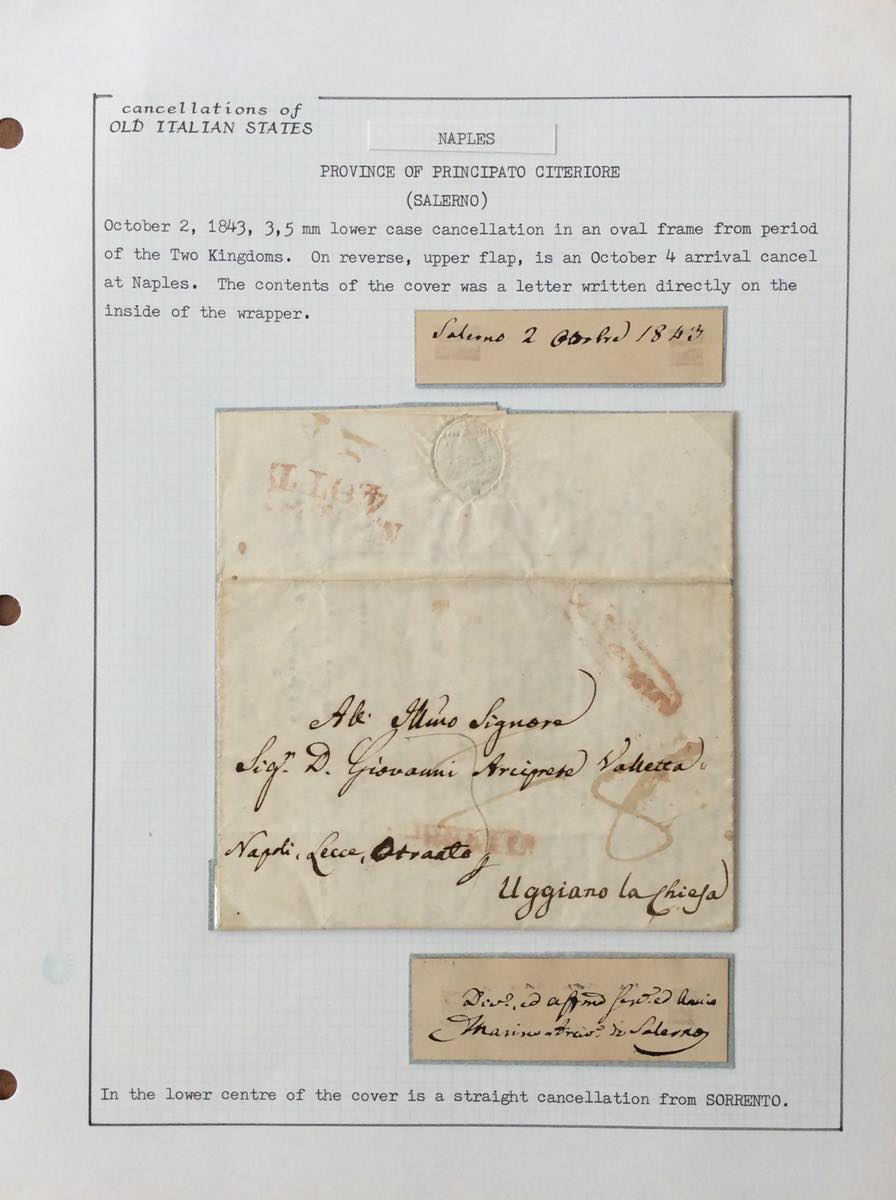 cancellations of
OLD ITALIAN STATES
NAPLES
PROVINCE OF PRINCIPATO CITERIORE
(SALERNO)
October 2, 1843, 3,5 mm lower case cancellation in an oval frame from period
of the Two Kingdoms. On reverse, upper flap, is an October 4 arrival cancel
at Naples. The contents of the cover was a letter written directly on the
inside of the wrapper.
Salerno 2 1843
All' Illmo Signore
Sigr. D. Giovanni Arciprete Valletta
8
Napoli, Lecce, Otranto
Uggiano la Chiesa
Divo. ed affmo ed Amico
Marino Arcivo. di Salerno
In the lower centre of the cover is a straight cancellation from SORRENTO.